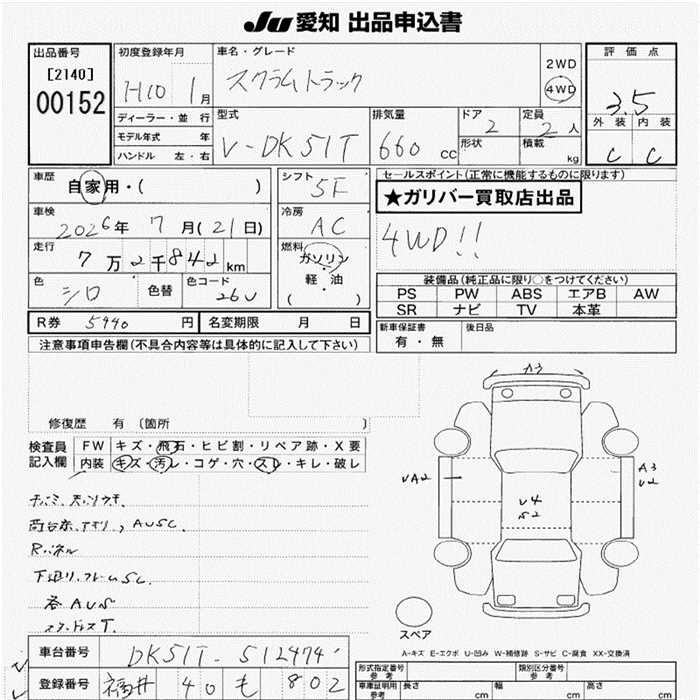 JU 愛知 出品申込書
出品番号
[2140]
00152
初度登録年月
H10 1月
車名・グレード
スクラムトラック
2WD
4WD
評価点
3.5
外装 内装
C C
ディーラー・並行
モデル年式 年
ハンドル 左・右
型式
V-DK51T
排気量
660 cc
ドア
2
形状
定員
2人
積載
kg
車歴
自家用・( )
シフト
5F
セールスポイント(正常に機能するものに限ります)
★ガリバー買取店出品
4WD!!
車検
2026年 7月(21日)
冷房
AC
走行
7万2千842km
燃料
ガソリン
軽・油
( )
色
シロ
色替
色コード
26U
装備品(純正品に限り○をつけてください)
PS PW ABS エアB AW
SR ナビ TV 本革
R券 5940円
名変期限 月 日
新車保証書
有・無
後日品
注意事項申告欄(不具合内容等は具体的に記入して下さい)
修復歴 有 〔箇所 〕
検査員
記入欄
FW キズ・飛石・ヒビ割・リペア跡・X要
内装 キズ・汚レ・コゲ・穴・スレ・キレ・破レ
A3
UA2
A3
U2
U4
S2
Rパネル
下廻り、フレームSC.
各AUS
スタッドレスT.
スペア
A-キズ E-エクボ U-凹み W-補修跡 S-サビ C-腐食 XX-交換済
車台番号
DK51T-512474
登録番号
福井 40 も 802
形式指定番号
参考
類別区分番号
参考
車庫証明用
参考
長さ cm
幅 cm
高さ cm